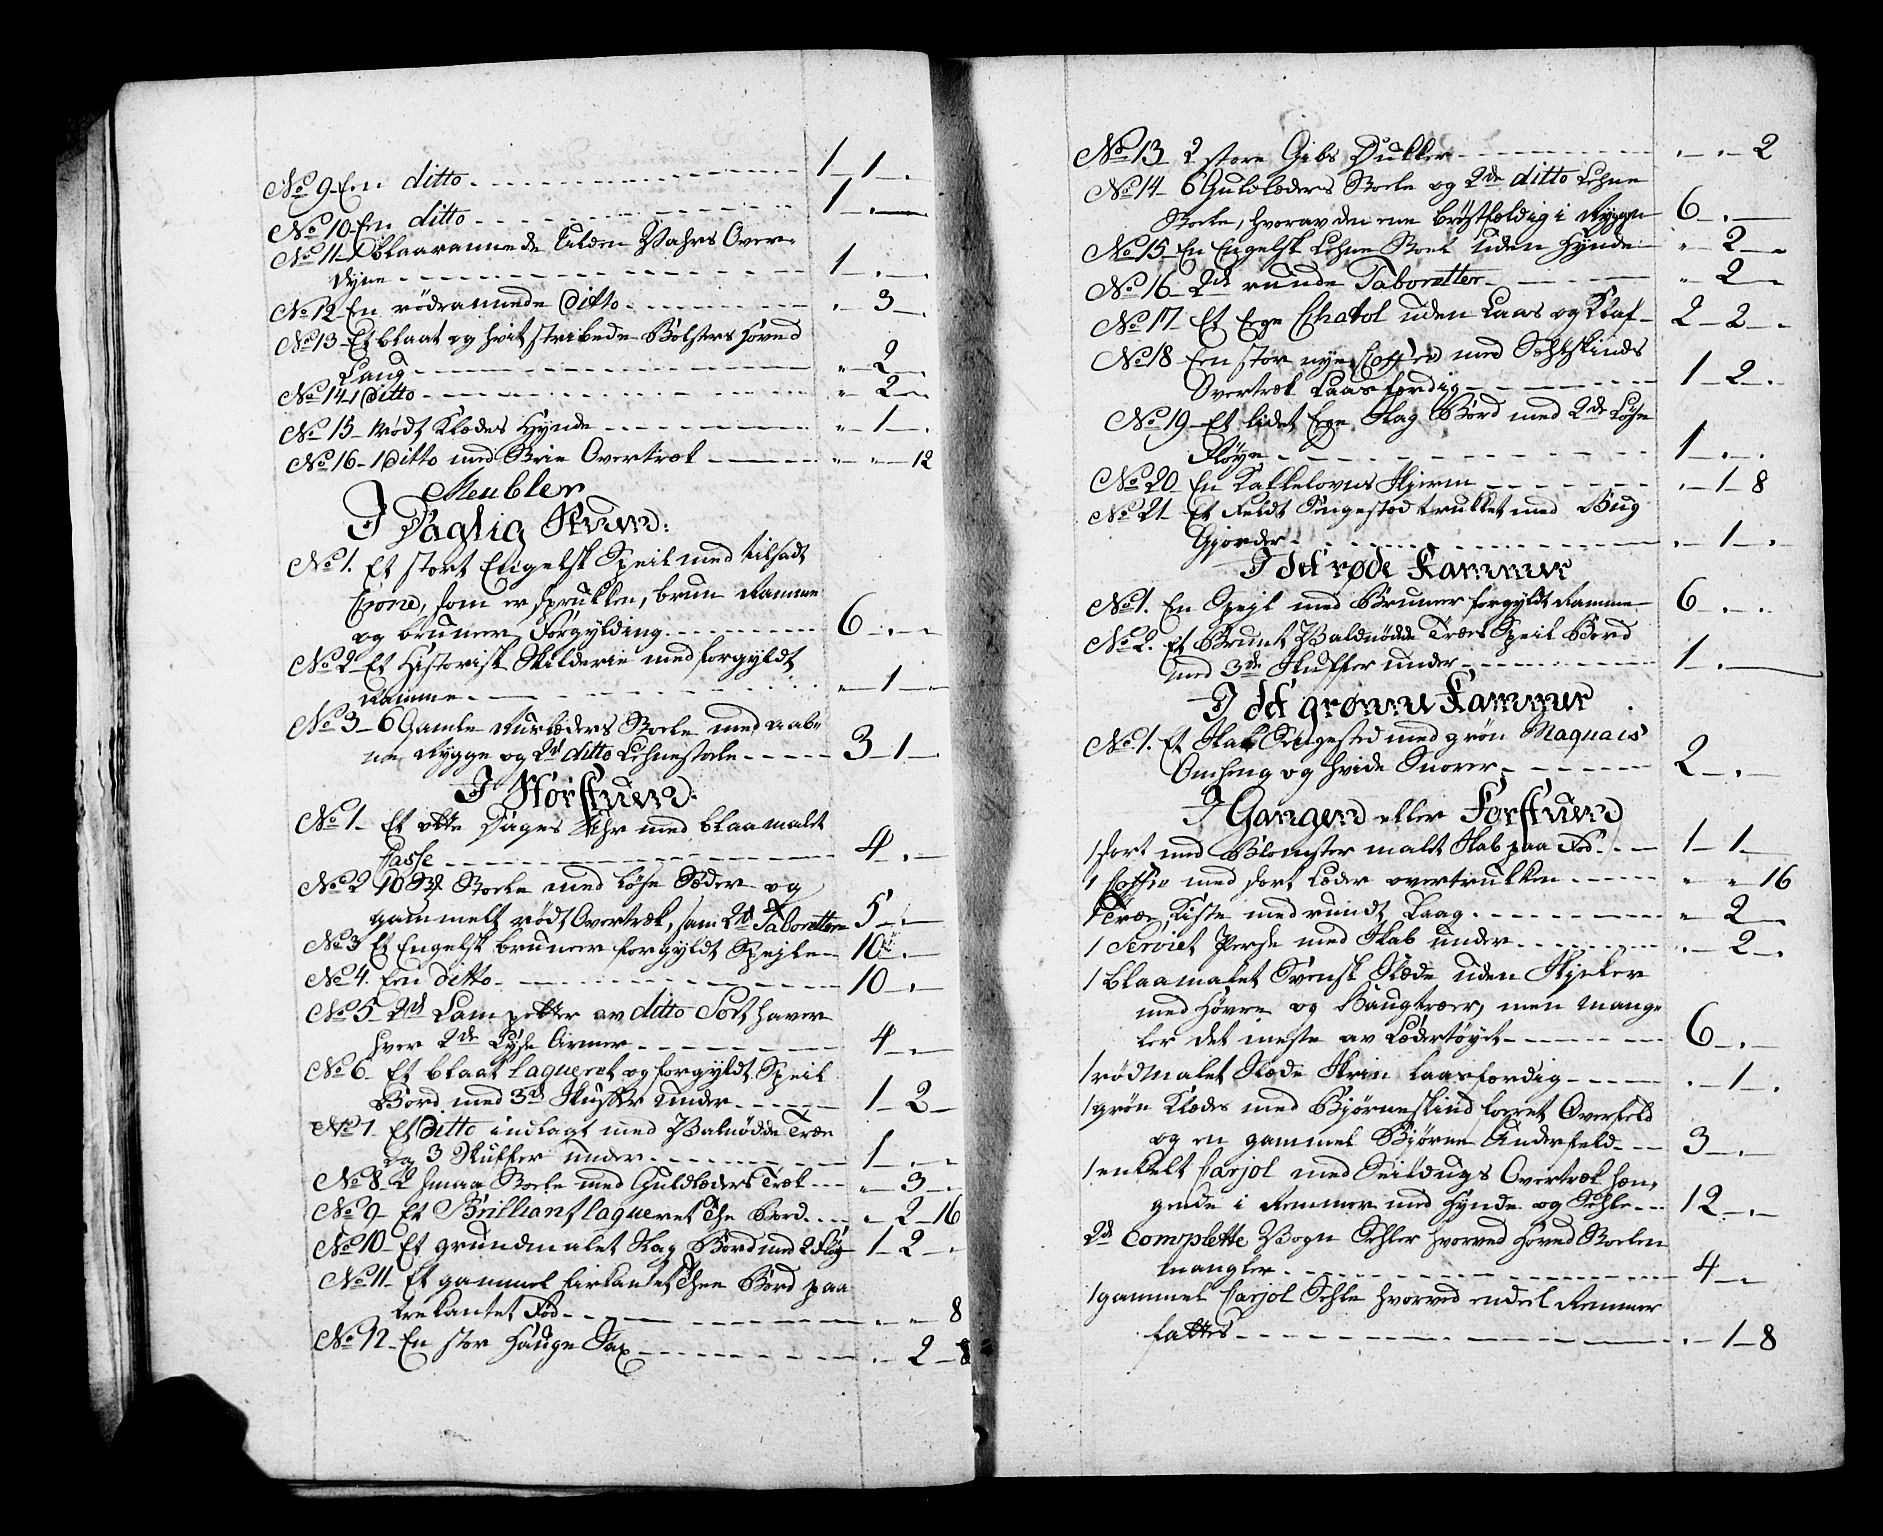 No 9 En ditto 1 - 1 -
No 10 En ditto 1 - . -
No 11 1 blaarannede Ulden Vahrs Over-
Dyne 1 - . -
No 12 En rödrannede Ditto . - 3 -
No 13 Et blaat og hvit stribede Bölsters Hoved
Laug . - 2 -
No 14 1 Ditto . - 2 -
No 15 1 Rödt Klædes Hynde . - 1 -
No 16 1 Ditto med Brun Overtræk . - . - 12
Meubler
I Daglig Stuen:
No 1. Et stort Engelsk Speil med tilsadt
Crone, som er sprukken, brun Ramme
og bruner Forgylding 6 - . -
No 2 Et Historisk Skilderie med forgyldt
Ramme . - 1 -
No 3 - 6 Gamle Ruslæders Stoele med aab-
ne Rygge og 2de ditto Lehnestoele 3 - 1 -
I Storstuen
No 1 - Et otte Dages Uhr med blaamalt
Casse 4 - . -
No 2 10 St Stoele med löse Sæder og
gammelt rödt Overtræk, sam 2de Taboretter 5 - . -
No 3 Et Engelsk bruner forgyldt Spejle 10 - . -
No 4. Een ditto 10 - . -
No 5 - 2de Lampetter av ditto Sort haver
hver 2de Lyse Armer 4 - . -
No 6 - Et blaat laqueret og forgyldt Speil
Bord med 3de Skuffer under 1 - 2 -
No 7 Et Ditto indlagt med Valnödde Træe
og 3 Skuffer under 1 - . -
No 8 - 2 smaa Stoele med Guldlæders Træk . - 3 -
No 9 - Et Brilliant laqueret The Bord . - 2 - 16
No 10 - Et grundmalet Slag Bord med 2 Flöy 1 - 2 - .
No 11 - Et gammel firkantet Thee Bord paa
trekantet Fod . - . - 8
No 12 - En stor Hauge Sax . - 2 - 8
No 13 2 store Gibs Dukker . - . - 2
No 14 - 6 Guldlæders Stoele og 2de ditto Lehne
Stoele, hvorav den ene bröstfældig i Ryggen 6 - . -
No 15 - En Engelsk Lehne Stoel uden Hynde . - 2 - .
No 16 - 2de runde Taboretter . - 2 -
No 17 - Et Ege Chatol uden Laas og Klaf- 2 - 2 - .
No 18 Een stor nye Coffer med Sehlskinds
Overtræk Laasfærdig 1 - 2 - .
No 19 - Et lidet Ege Slag Bord med 2de Löse
Flöye 1 - . - .
No 20 - En Kakkelovns Skjerm . - 1 - 8
No 21 - Et Feldt Sengested trukket med Bug
Gjorder . - 1 - .
I det røde Kammer
No 1. En Spejl med Bruner forgyldt Ramme 6 - . - .
No 2. Et Brunt Valnödde Træes Speil Bord
med 3de Skuffer under 1 - . -
I det grønne Kammer
No 1. Et Skab Sengested med grön Maquais
Omheng og hvide Snorer 2 - . -
I Gangen eller Forstuen
1 sort med Blomster malt Skab paa Fod 1 - 1 -
1 Coffer med sort Læder overtrukken . - . - 16
1 Træe Kiste med rundt Laag . - 2 -
1 Serviet Perse med Skab under . - 2 - .
1 blaamalet Svensk Slæde uden Skjeker
med Hövre og Baugtræer, men mang-
ler det meste av Lædertöyet 6 - . -
1 rödmalet Slæde Skrin laasfærdig . - 1 - .
1 grön Klædes med Björneskind foeret Overfeld
og en gammel Björne Underfeld 3 - . -
1 enkelt Carjol med Seildugs Overtræk hæn-
gende i Remmer med Hynde og Sehle 12 - . -
2de Complette Vogn Sehler hvorved Hoved Stoelen
mangler 4 - . -
1 gammel Carjol Sehle hvorved endeel Remmer
fattes . - 1 - 8